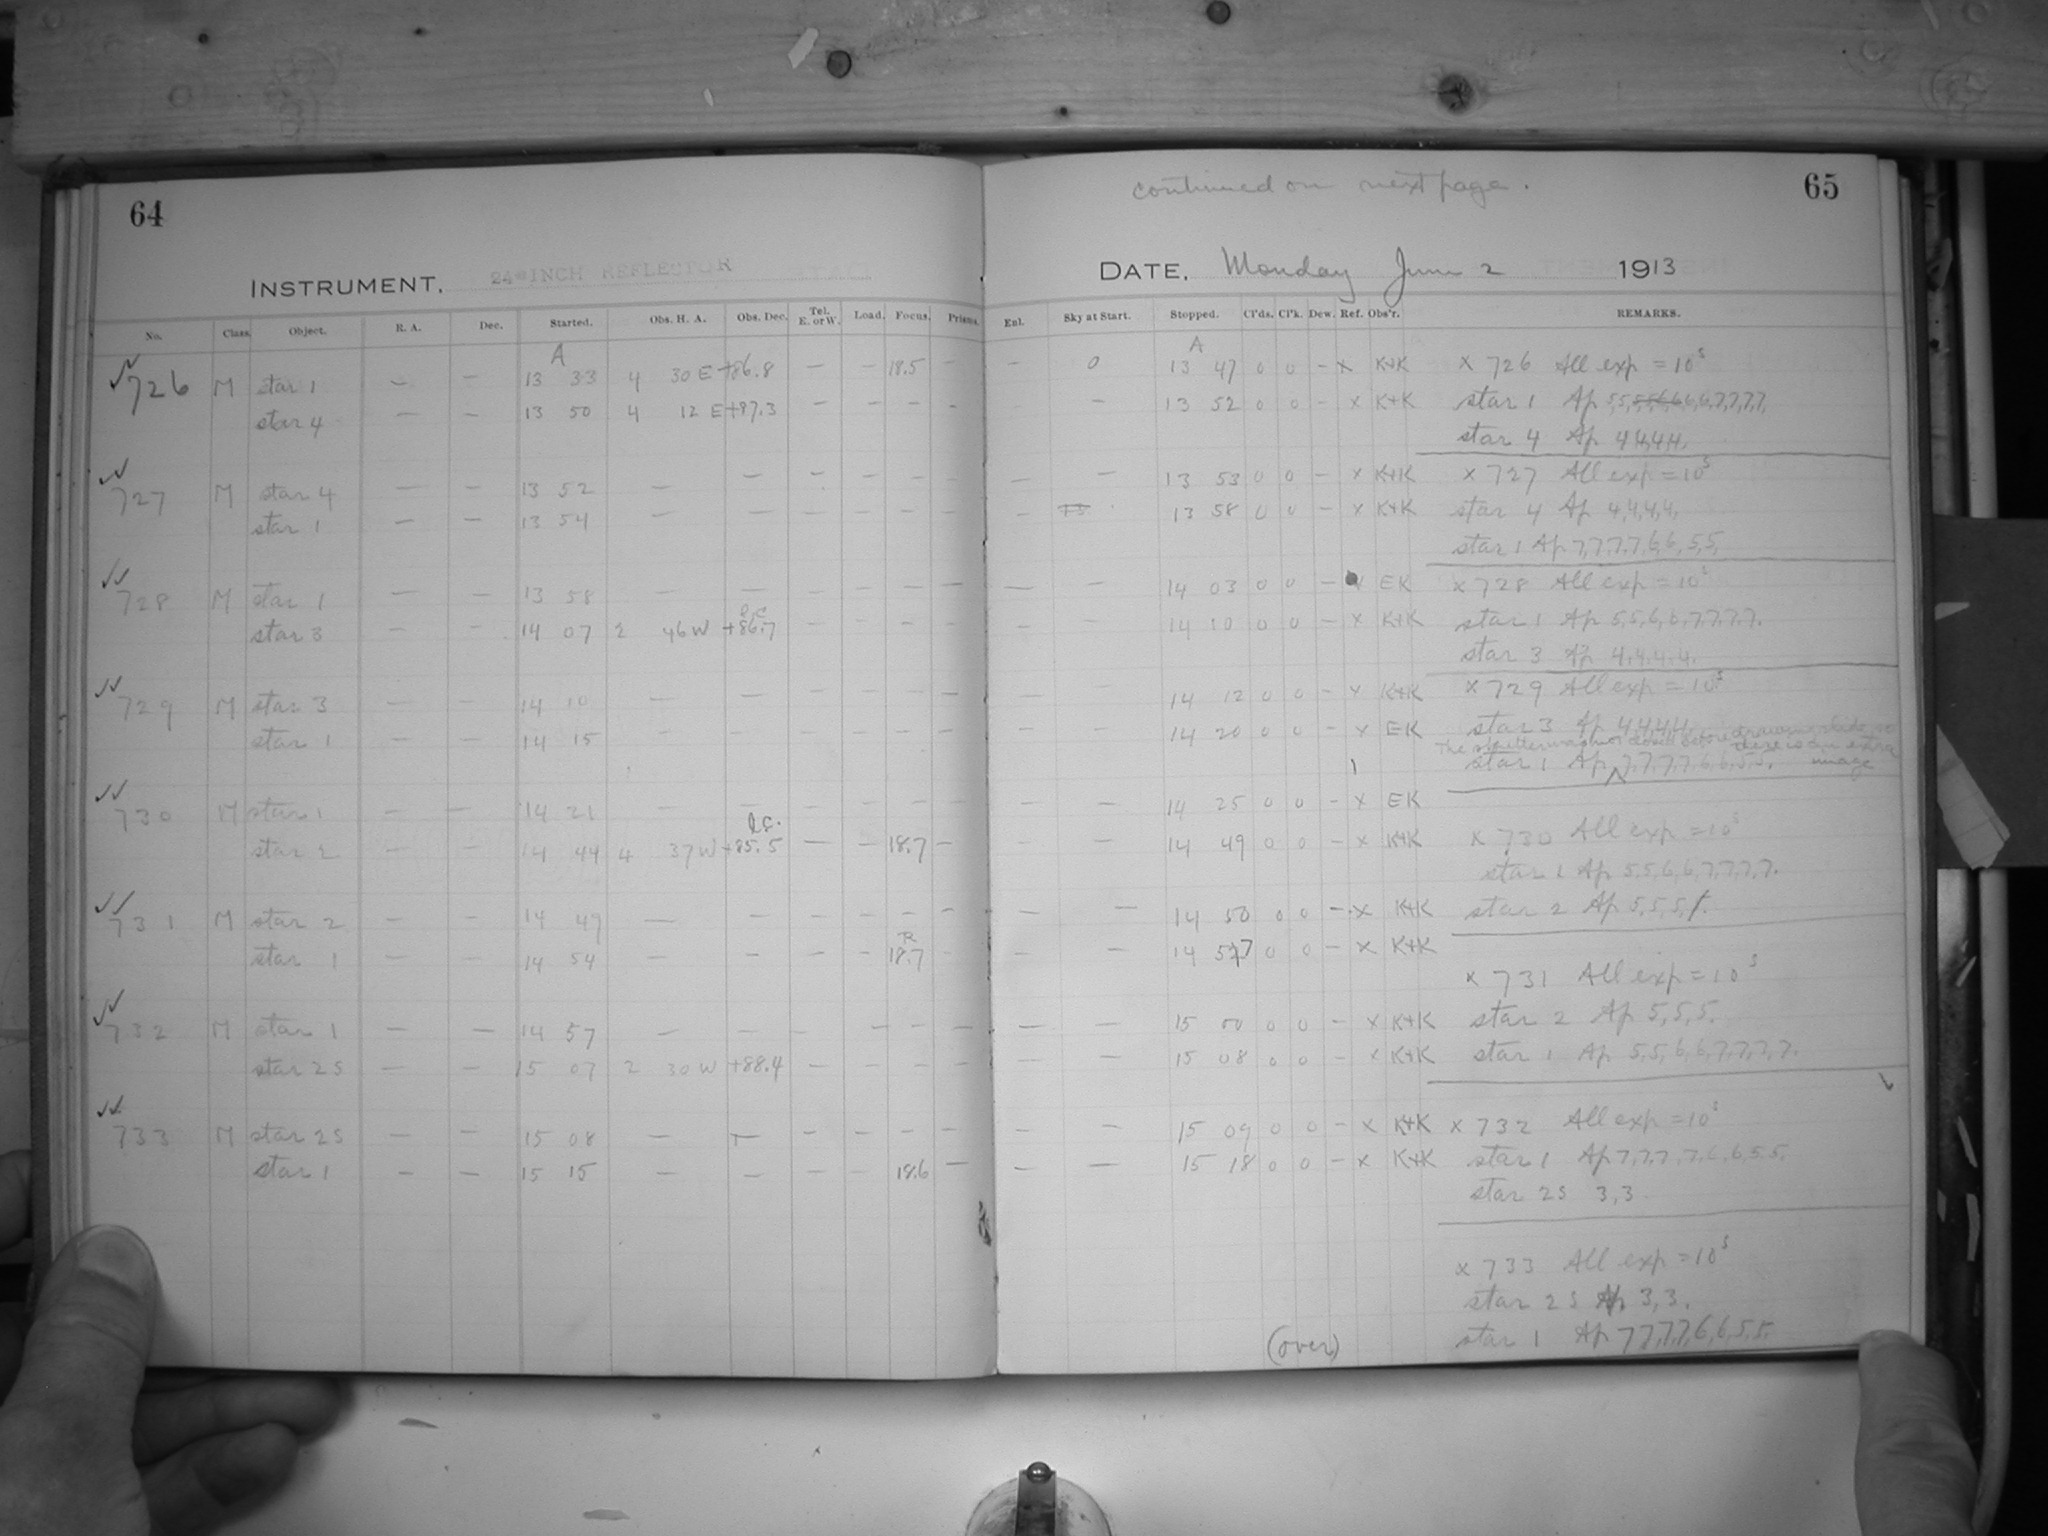 64
INSTRUMENT. 24-INCH REFLECTOR
No. Class. Object. R. A. Dec. Started. Obs. H. A. Obs. Dec. Tel. E. or W. Load. Focus. Prisms.
A
726 M star 1 — — 13 33 4 30 E +86.8 — — 18.5 —
star 4 — — 13 50 4 12 E +87.3 — — — -
727 M star 4 — — 13 52 — — — — — —
star 1 — — 13 54 — — — — — —
728 M star 1 — — 13 58 — — — — — —
l.c.
star 3 — — 14 07 2 46 W +86.7 — — — —
729 M star 3 — — 14 10 — — — — — —
star 1 — — 14 15 — — — — — —
730 M star 1 — — 14 21 — — — — — —
l.c.
star 2 — — 14 44 4 37 W +85.5 — — 18.7 —
731 M star 2 — — 14 49 — — — — — —
R
star 1 — — 14 54 — — — — 18.7 —
732 M star 1 — — 14 57 — — — — — —
star 2S — — 15 07 2 30 W +88.4 — — — —
733 M star 2S — — 15 08 — — — — — —
star 1 — — 15 15 — — — — 18.6 —
continued on next page.
65
DATE. Monday June 2 1913
Enl. Sky at Start. Stopped. Cl'ds. Cl'k. Dew. Ref. Obs'r. REMARKS.
A
— 0 13 47 0 0 — x K+K x 726 All exp = 10s
— — 13 52 0 0 — x K+K star 1 Ap 5,5,5,5,6,6,6,6,7,7,7,7,
star 4 Ap 4,4,4,4,
— — 13 53 0 0 — x K+K x 727 All exp = 10s
— 13 58 0 0 — x K+K star 4 Ap 4,4,4,4,
star 1 Ap 7,7,7,7,6,6,5,5,
— — 14 03 0 0 — x EK x 728 All exp = 10s
— — 14 10 0 0 — x K+K star 1 Ap 5,5,6,6,7,7,7,7.
star 3 Ap 4,4,4,4.
— — 14 12 0 0 — x K+K x 729 All exp = 10s
— — 14 20 0 0 — x EK star 3 Ap 4,4,4,4,
The shutter was not closed before drawing slide so there is an extra image
star 1 Ap 7,7,7,7,6,6,5,5.
— — 14 25 0 0 — x EK
— — 14 49 0 0 — x K+K x 730 All exp = 10s
star 1 Ap 5,5,6,6,7,7,7,7.
— — 14 50 0 0 — x K+K star 2 Ap 5,5,5,
— — 14 57 0 0 — x K+K
x 731 All exp = 10s
— — 15 00 0 0 — x K+K star 2 Ap 5,5,5.
— — 15 08 0 0 — x K+K star 1 Ap 5,5,6,6,7,7,7,7.
— — 15 09 0 0 — x K+K x 732 All exp = 10s
— — 15 18 0 0 — x K+K star 1 Ap 7,7,7,7,6,6,5,5.
star 2S 3,3
x 733 All exp = 10s
star 2S Ap 3,3.
(over) star 1 Ap 7,7,7,7,6,6,5,5.